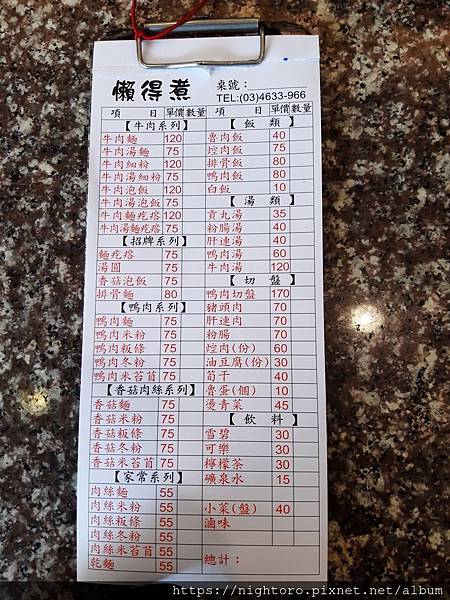 懶得煮
桌號：
TEL:(03)4633-966
項 目 單價 數量
【牛肉系列】
牛肉麵 120
牛肉湯麵 75
牛肉細粉 120
牛肉湯細粉 75
牛肉泡飯 120
牛肉湯泡飯 75
牛肉麵疙瘩 120
牛肉湯麵疙瘩 75
【招牌系列】
麵疙瘩 75
湯圓 75
香菇泡飯 75
排骨麵 80
【鴨肉系列】
鴨肉麵 75
鴨肉米粉 75
鴨肉粄條 75
鴨肉冬粉 75
鴨肉米苔苜 75
【香菇肉絲系列】
香菇麵 75
香菇米粉 75
香菇粄條 75
香菇冬粉 75
香菇米苔苜 75
【家常系列】
肉絲麵 55
肉絲米粉 55
肉絲粄條 55
肉絲冬粉 55
肉絲米苔苜 55
乾麵 55
項 目 單價 數量
【飯 類】
魯肉飯 40
焢肉飯 75
排骨飯 80
鴨肉飯 80
白飯 10
【湯 類】
貢丸湯 35
粉腸湯 40
肝連湯 40
鴨肉湯 60
牛肉湯 120
【切 盤】
鴨肉切盤 170
豬頭肉 70
肝連肉 70
粉腸 70
焢肉(份) 60
油豆腐(份) 30
筍干 40
魯蛋(個) 10
燙青菜 45
【飲 料】
雪碧 30
可樂 30
檸檬茶 30
礦泉水 15
小菜(盤) 40
滷味
總計：
https://nightoro.pixnet.net/album